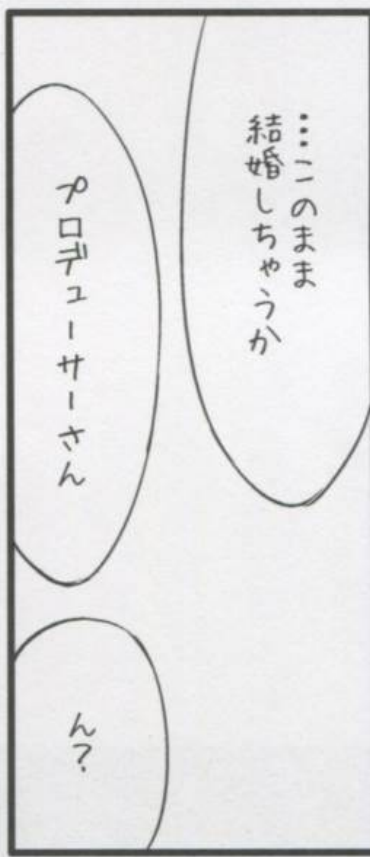 …このまま
結婚しちゃうか
プロデューサーさん
ん?